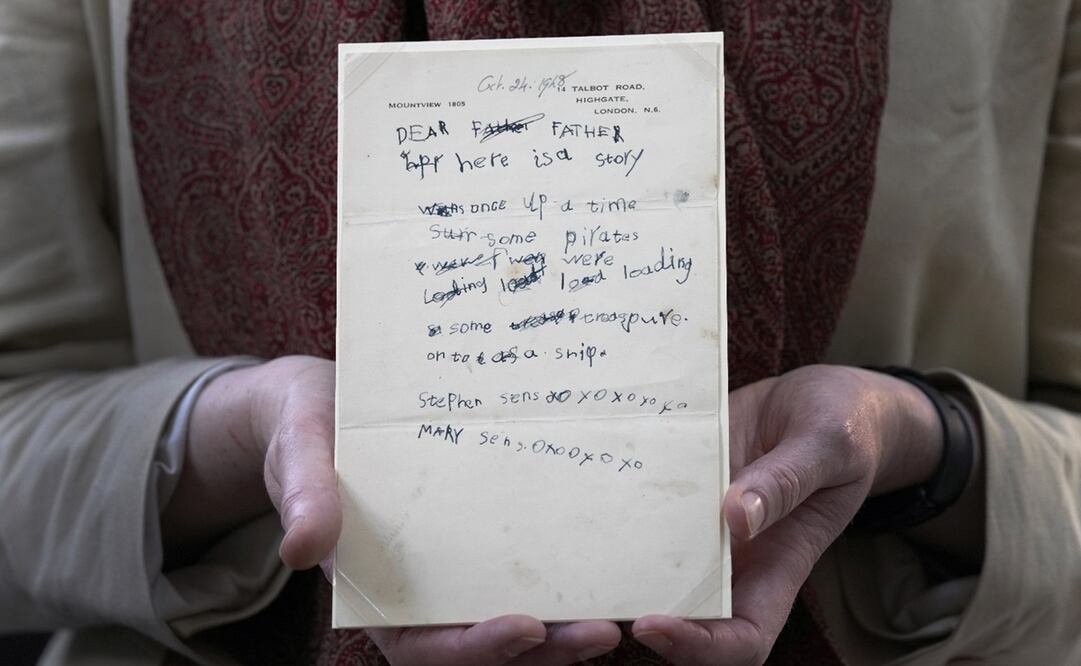 Oct. 24. 1948
14 TALBOT ROAD,
MOUNTVIEW 1805
HIGHGATE,
LONDON. N.6.
DEAR FATHER
here is a story
once up a time
some pirates
were
loading
some
on to a ship.
Stephen sens xoxoxoxoxo
MARY sens. oxooxoxo